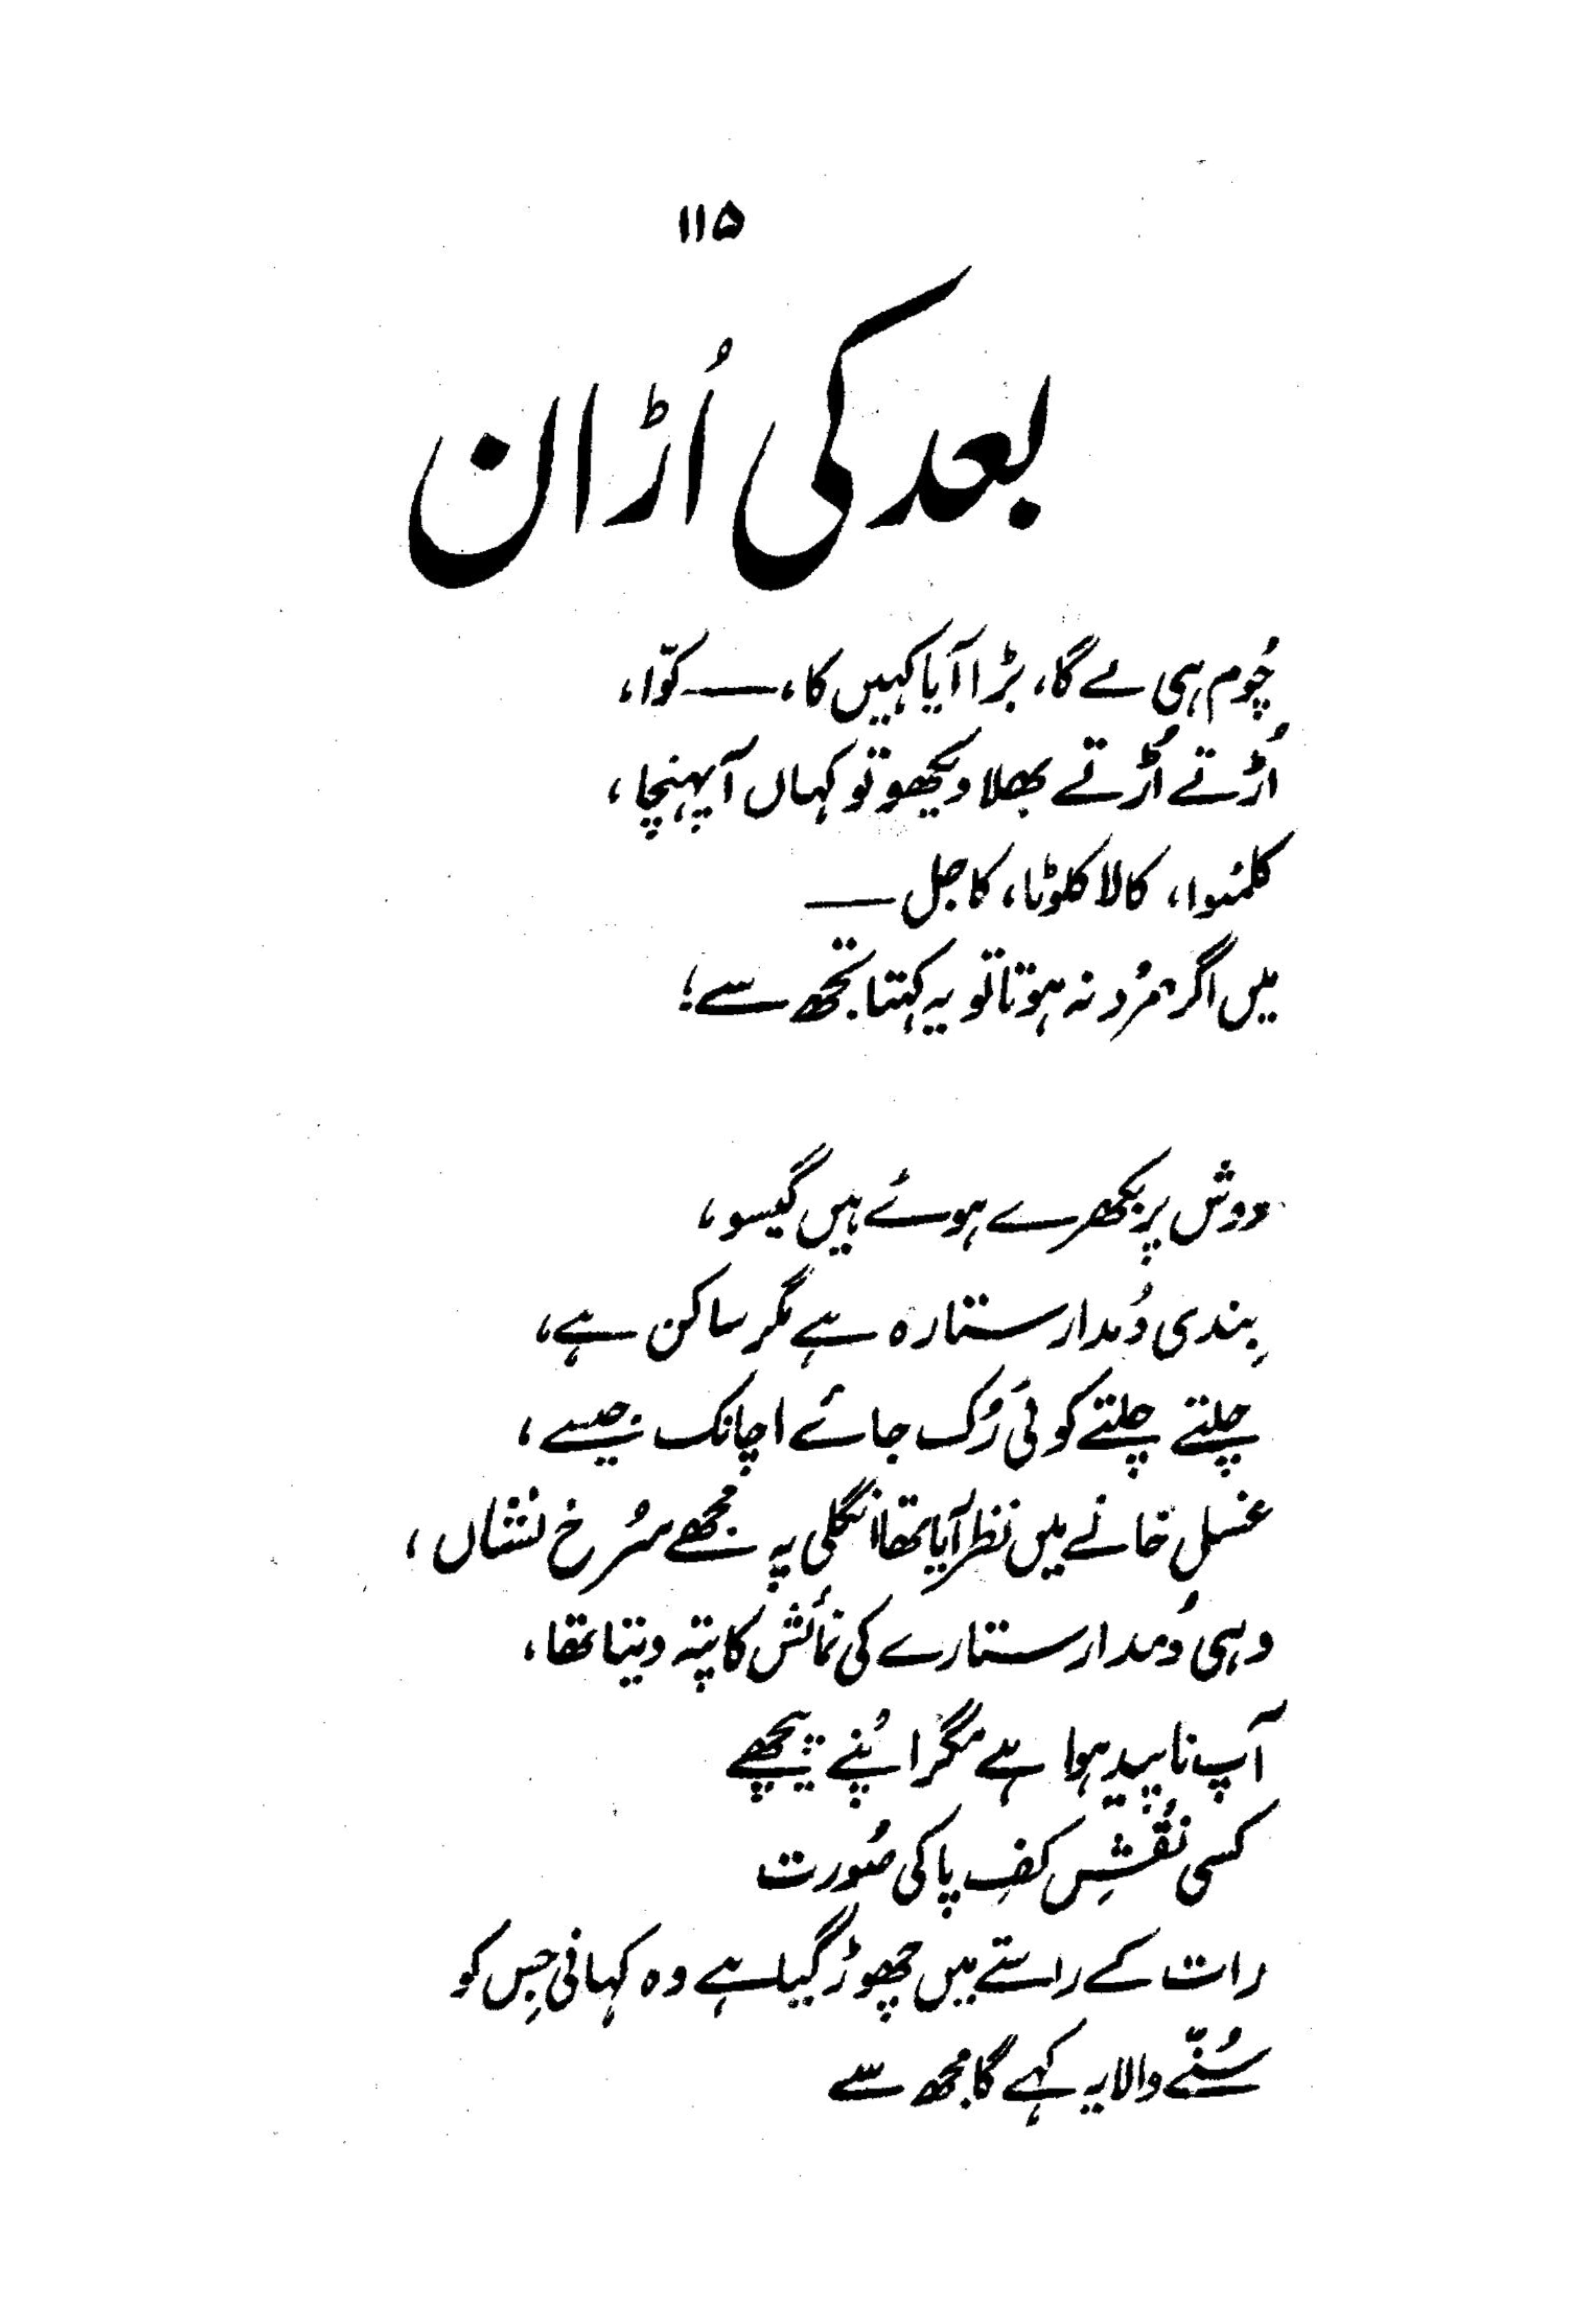 ۱۱۵
بعد کی اُڑان
چُوم ہی لے گا، بڑا آیا کہیں کا، — کوّا،
اُڑتے اُڑتے بھلا دیکھو تو کہاں آ پہنچا،
کلمُنوا، کالا کلوٹا، کاجل —
میں اگر مرد نہ ہوتا تو یہ کہتا تجھ سے!
دوش پر بکھرے ہوئے ہیں گیسو،
بِندی دُمدار ستارہ ہے مگر ساکن ہے،
چلتے چلتے کوئی رُک جائے اچانک جیسے،
غسل خانے میں نظر آیا تھا انگلی پہ مجھے سُرخ نشاں،
وہی دُمدار ستارے کی نمائش کا پتہ دیتا تھا،
آپ ناپید ہوا ہے مگر اپنے پیچھے
کسی نقشِ کفِ پا کی صُورت
رات کے راستے میں چھوڑ گیا ہے وہ کہانی جِس کو
سُننے والا یہ کہے گا مجھ سے